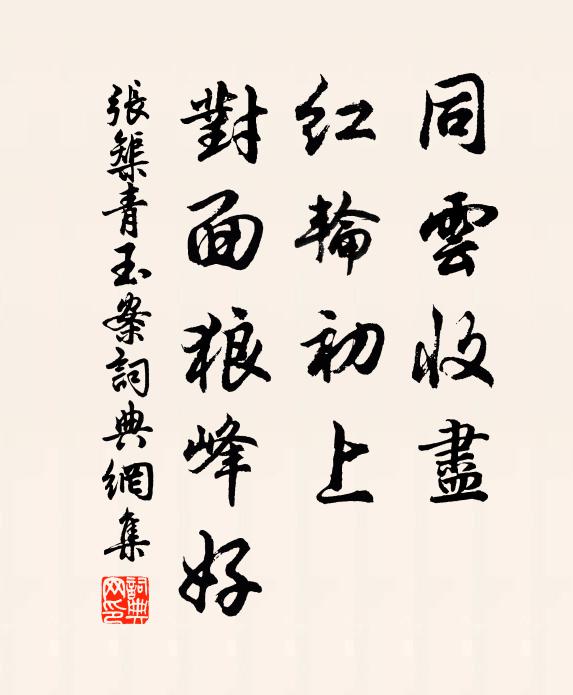 同雲收盡
紅輪初上
對面狼峰好
張榘青玉案詞典網集
詞典網印